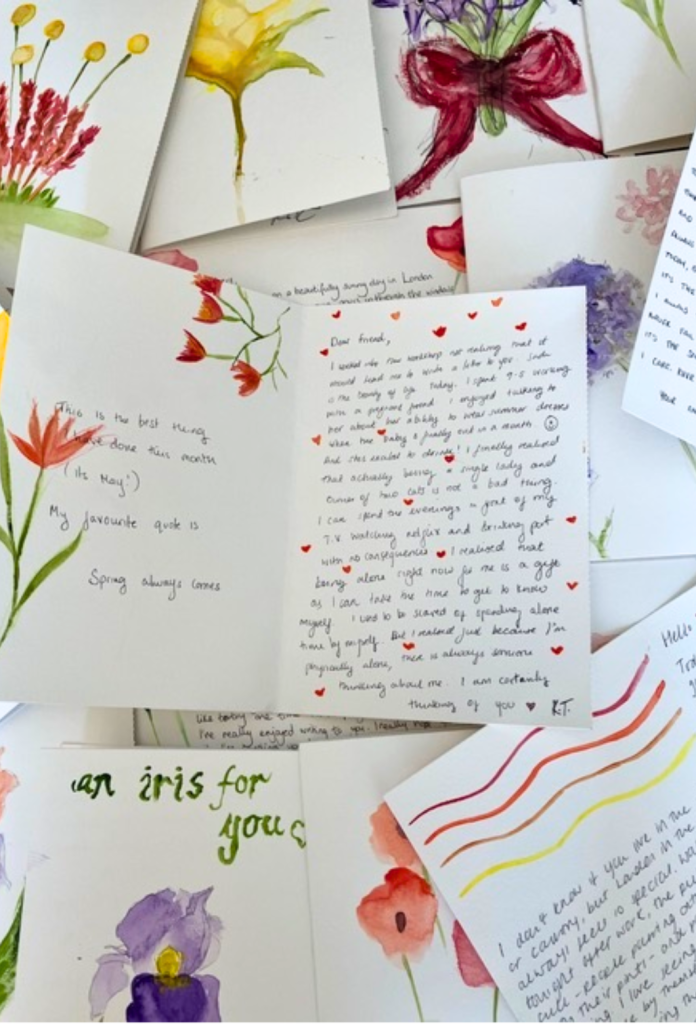 on a beautifully sunny day in London
This is the best thing
I have done this month
(its May!)
My favourite quote is
Spring always comes
Dear friend,
I walked into this workshop not realising that it
would lead me to write a letter to you. Such
is the beauty of life. Today, I spent 9-5 working
with a pregnant friend. I enjoyed talking to
her about her ability to wear summer dresses
when the baby is finally out in a month ☺
And she's excited to drink! I finally realised
that actually being a single lady and
owner of two cats is not a bad thing.
I can spend the evenings in front of my
T.V watching netflix and drinking port
with no consequences. I realised that
being alone right now for me is a gift
as I can take the time to get to know
myself. I used to be scared of spending alone
time by myself. But I realised just because I'm
physically alone, there is always someone
thinking about me. I am certainly
thinking of you ♥ K.T.
I've really enjoyed writing to you. I really
an iris for
you
ITS THE
I ALWAYS
NEVER
ITS THE
I CARE
YOUR
Hello
I don't know if you live in the
or country, but London in the
always feels so special.
tonight after work, the
people
their pints - and
I love seeing
by